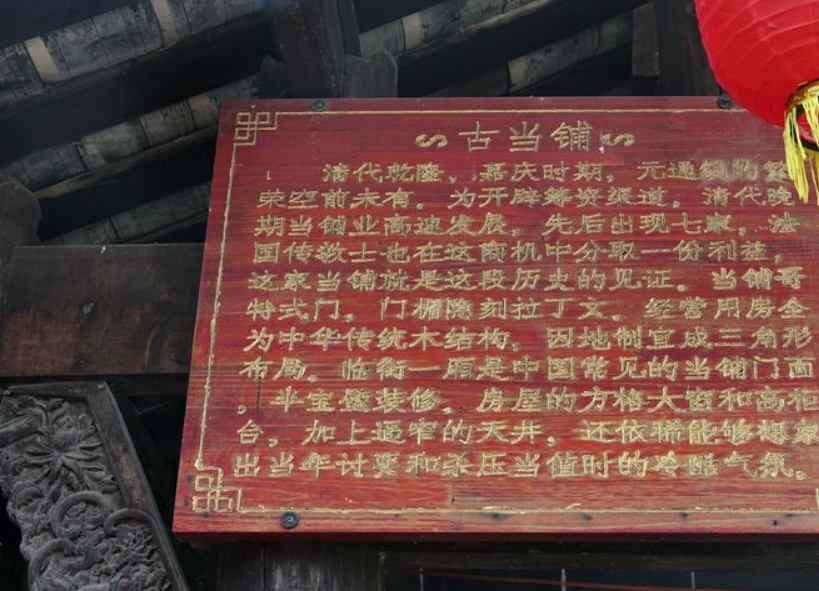 古当铺
清代乾隆，嘉庆时期，元通镇的繁
荣空前未有。为开辟筹资渠道，清代晚
期当铺业高速发展，先后出现七家，法
国传教士也在这商机中分取一份利益，
这家当铺就是这段历史的见证。当铺哥
特式门，门楣隐刻拉丁文。经营用房全
为中华传统木结构，因地制宜成三角形
布局。临街一厢是中国常见的当铺门面
，半宝壁装修。房屋的方格大窗和高柜
台，加上逼窄的天井，还依稀能够想象
出当年讨要和杀压当值时的冷酷气氛。